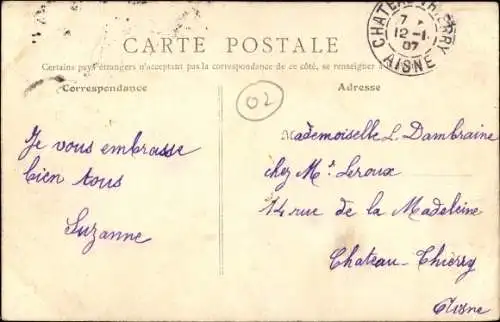 CHATEAU-THIERRY
7
12-1
07
AISNE
CARTE POSTALE
Certains pays étrangers n'acceptant pas la correspondance de ce côté, se renseigner à la
Correspondance
Adresse
02
Je vous embrasse
bien tous
Suzanne
Mademoiselle L. Dambraine
chez Mr Leroux
14 rue de la Madeleine
Chateau-Thierry
Aisne